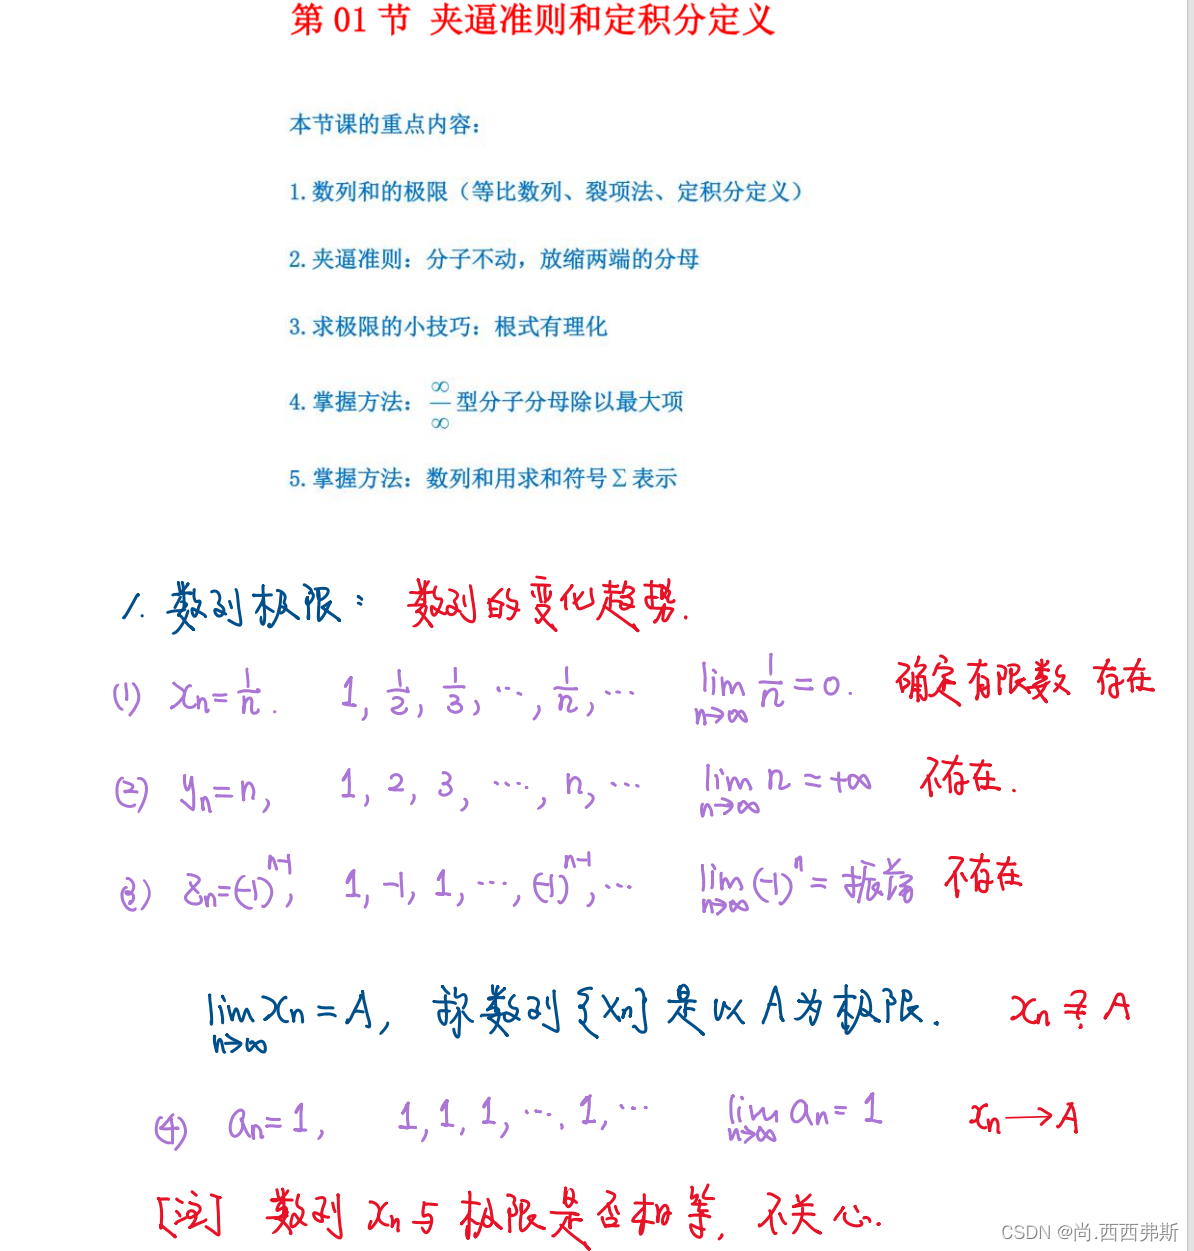 第 01 节 夹逼准则和定积分定义
本节课的重点内容：
1. 数列和的极限（等比数列、裂项法、定积分定义）
2. 夹逼准则：分子不动，放缩两端的分母
3. 求极限的小技巧：根式有理化
4. 掌握方法：∞/∞ 型分子分母除以最大项
5. 掌握方法：数列和用求和符号 Σ 表示
1. 数列极限： 数列的变化趋势.
(1) xₙ = 1/n. 1, 1/2, 1/3, …, 1/n, … lim n→∞ 1/n = 0. 确定有限数 存在
(2) yₙ = n, 1, 2, 3, …, n, … lim n→∞ n = +∞ 不存在.
(3) zₙ = (-1)ⁿ⁻¹, 1, -1, 1, …, (-1)ⁿ⁻¹, … lim n→∞ (-1)ⁿ = 振荡 不存在
lim n→∞ xₙ = A, 称数列{xₙ}是以A为极限. xₙ =? A
(4) aₙ = 1, 1, 1, 1, …, 1, … lim n→∞ aₙ = 1 xₙ → A
[注] 数列 xₙ 与极限是否相等, 不关心.
CSDN @尚.西西弗斯